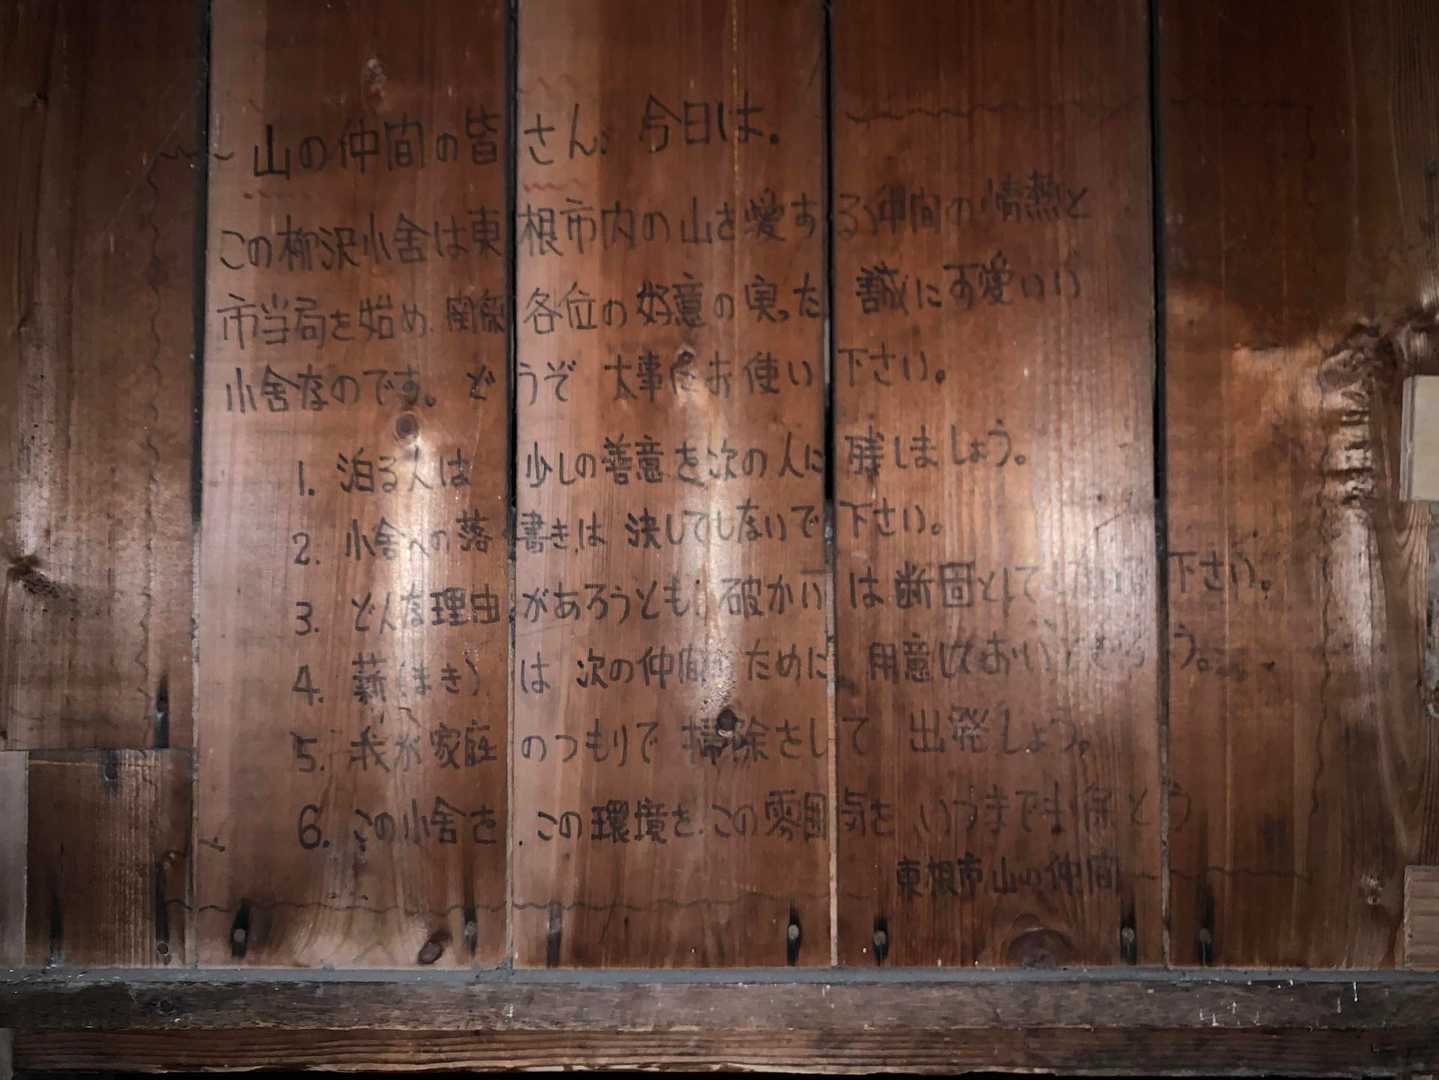 山の仲間の皆さん、今日は。
この柳沢小舎は東根市内の山を愛する仲間の情熱と
市当局を始め、関係各位の好意の実った 誠に可愛いい
小舎なのです。どうぞ 大事にお使い下さい。
1. 泊る人は 少しの善意を次の人に残しましょう。
2. 小舎への落書きは 決してしないで下さい。
3. どんな理由があろうとも、破かいは断固として 下さい。
4. 薪(まき)は 次の仲間のために 用意しておいて う。
5. 我が家庭のつもりで 掃除をして 出発しょう。
6. この小舎を、この環境を、この雰囲気を いつまでも保とう
東根市山の仲間